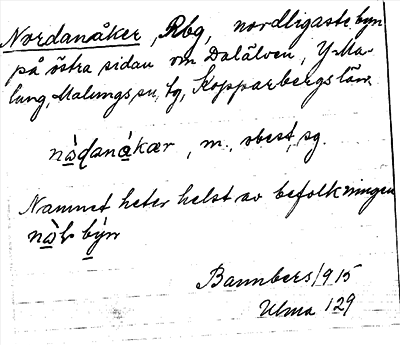 Nordanåker, Rbg, nordligaste byn
på östra sidan om Dalälven, Y. Ma-
lung, Malungs sn, tg, Kopparbergs län.
nòdanåkær, m., obest. sg.
Namnet heter helst av befolkningen
býn
Bannbers 1915
Ulma 129